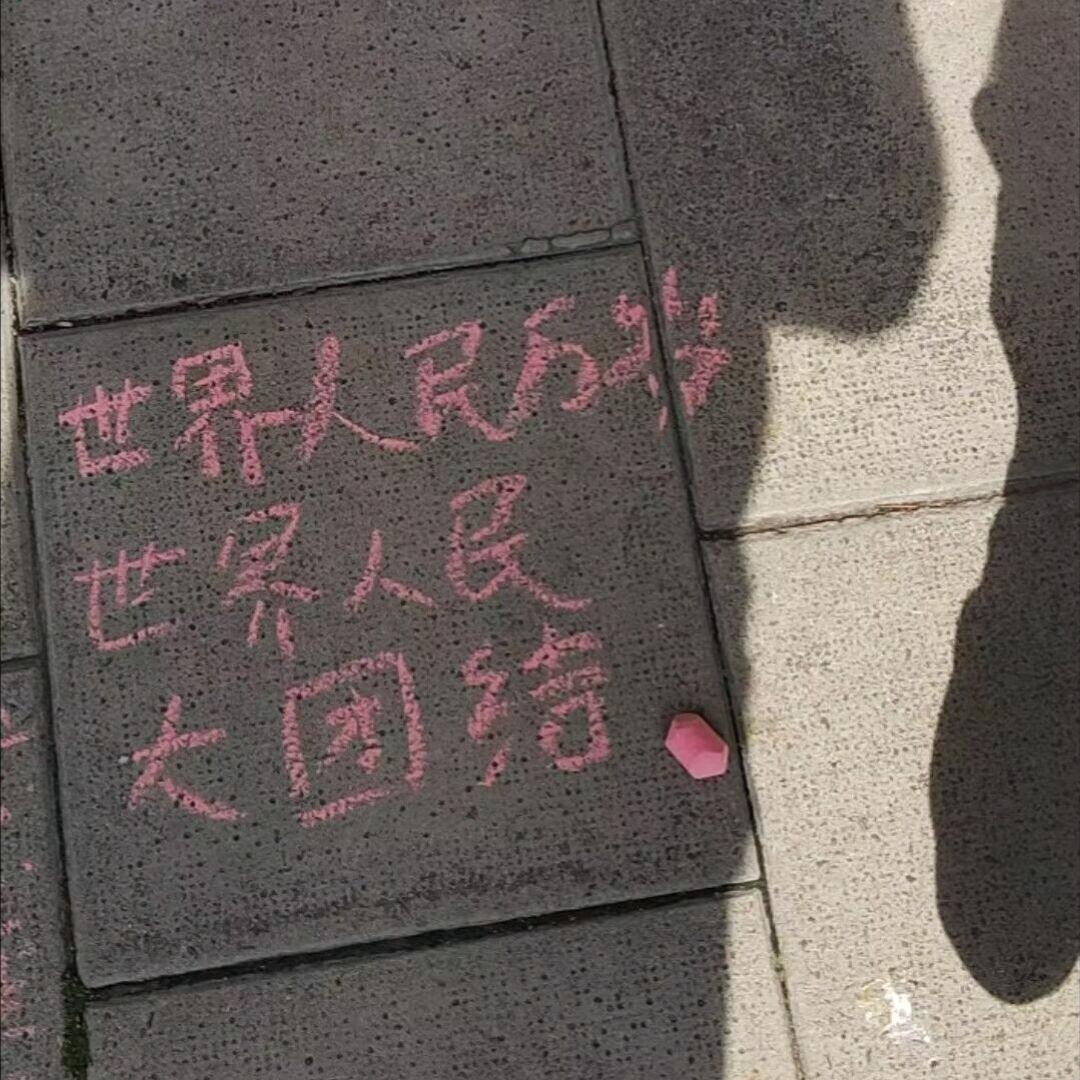 世界人民万岁
世界人民
大团结